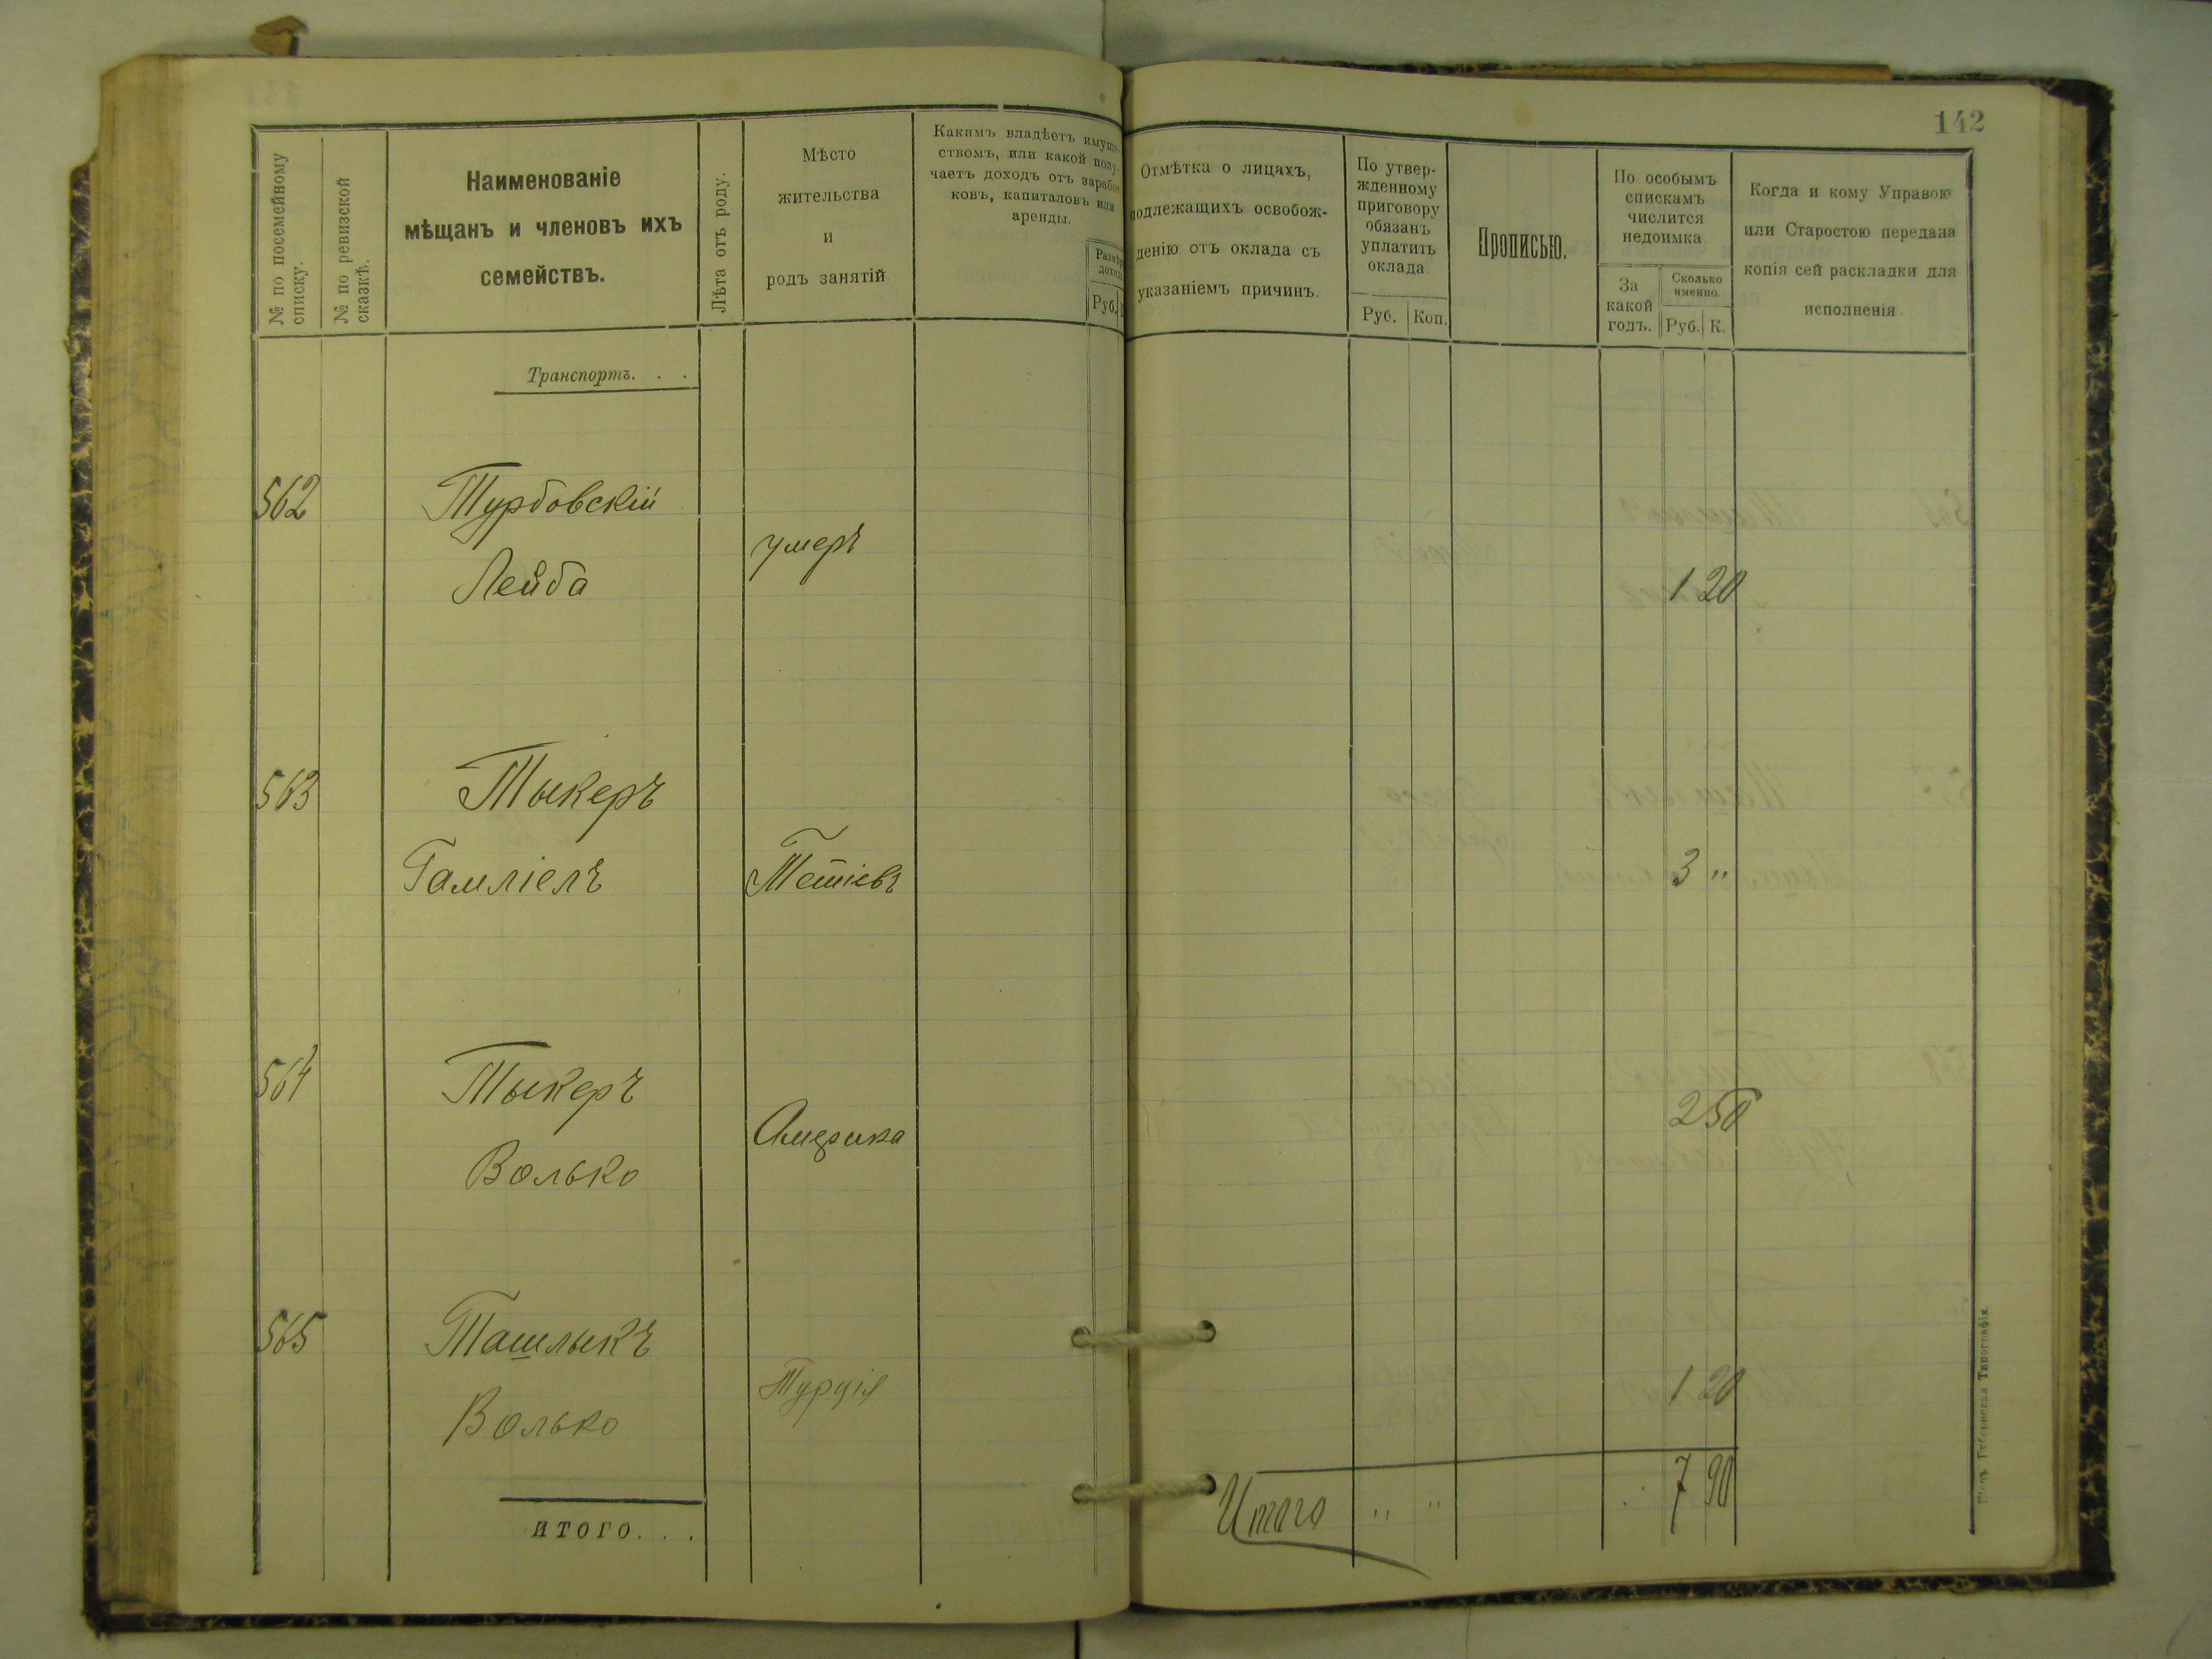 142
№ по посемейному
списку.
№ по ревизской
сказкѣ.
Наименованіе
мѣщанъ и членовъ ихъ
семействъ.
Лѣта отъ роду.
Мѣсто
жительства
и
родъ занятій
Какимъ владѣетъ имуще-
ствомъ, или какой полу-
чаетъ доходъ отъ заработ-
ковъ, капиталовъ или
аренды.
Размѣръ
дохода
Руб.
Отмѣтка о лицахъ,
подлежащихъ освобож-
денію отъ оклада съ
указаніемъ причинъ.
По утвер-
жденному
приговору
обязанъ
уплатить
оклада
Руб. Коп.
Прописью.
По особымъ
спискамъ
числится
недоимка
За
какой
годъ.
Сколько
именно.
Руб. К.
Когда и кому Управою
или Старостою передана
копія сей раскладки для
исполненія.
Транспортъ. . .
562 Турбовскій
умеръ
Лейба 1 20
563 Тыкеръ
Гамліелъ Тетіевъ 3 "
564 Тыкеръ
Америка 2 50
Волько
565 Ташлыкъ
Турція 1 20
Волько
итого. . .
Итого " " 7 90
Губернская Типографія.